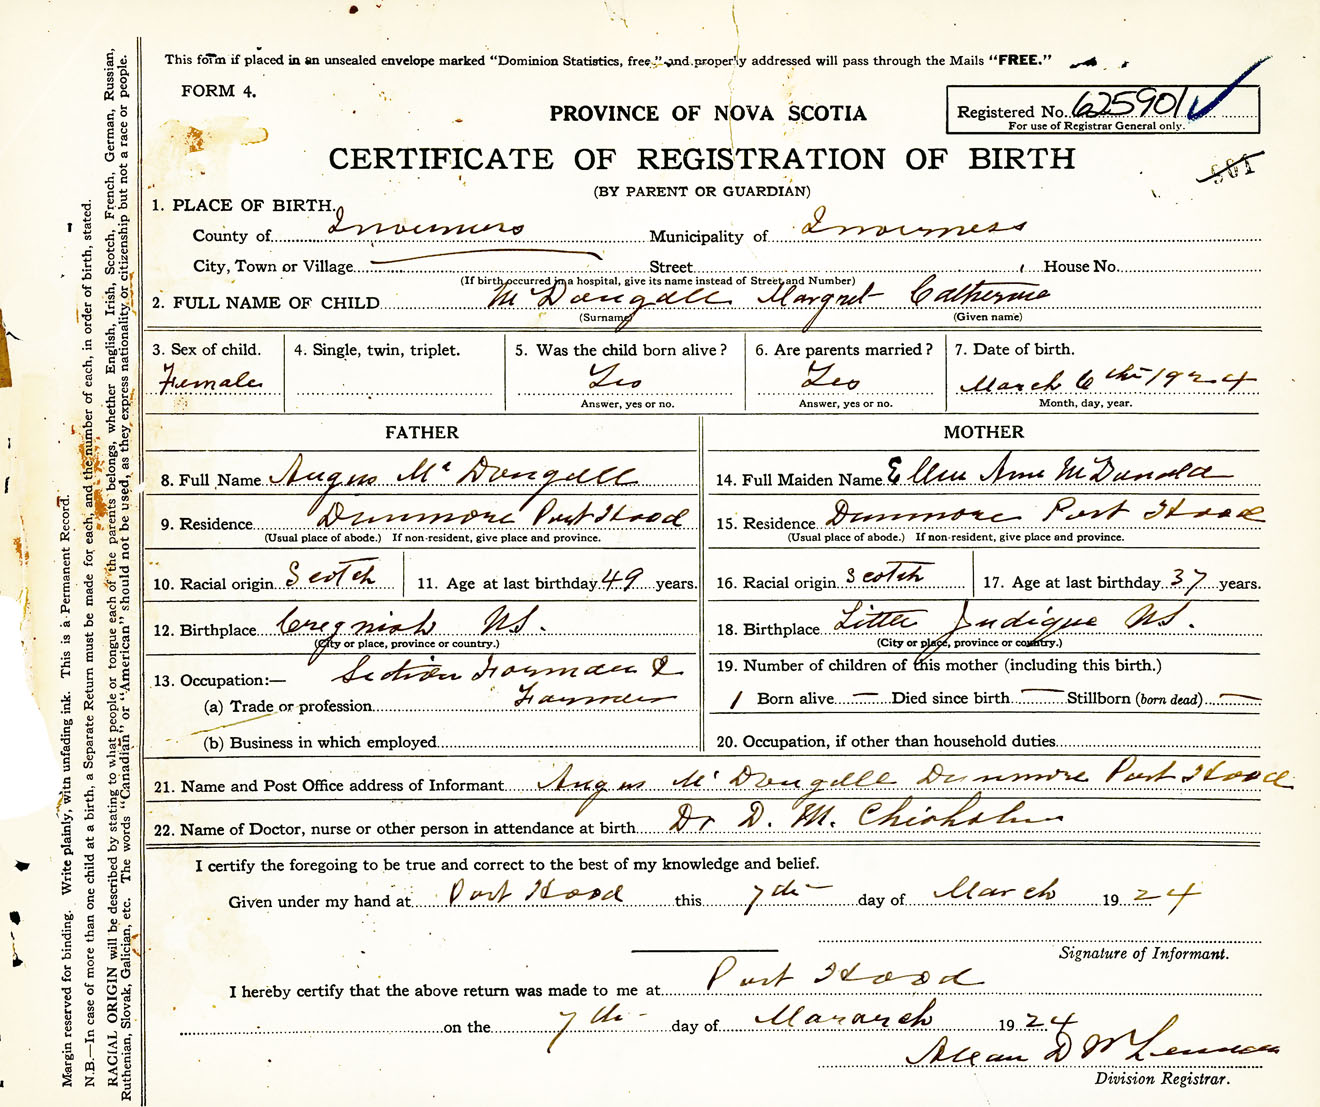 This form if placed in an unsealed envelope marked "Dominion Statistics, free," and properly addressed will pass through the Mails "FREE."
FORM 4.
PROVINCE OF NOVA SCOTIA
Registered No. 625901
For use of Registrar General only.
CERTIFICATE OF REGISTRATION OF BIRTH
901
(BY PARENT OR GUARDIAN)
1. PLACE OF BIRTH.
County of Inverness Municipality of Inverness
City, Town or Village Street House No.
(If birth occurred in a hospital, give its name instead of Street and Number)
2. FULL NAME OF CHILD McDougall Margret Catherine
(Surname) (Given name)
3. Sex of child. 4. Single, twin, triplet. 5. Was the child born alive? 6. Are parents married? 7. Date of birth.
Female Yes Yes March 6th 1924
Answer, yes or no. Answer, yes or no. Month, day, year.
FATHER MOTHER
8. Full Name Angus McDougall 14. Full Maiden Name Ellen Ann McDonald
9. Residence Dunmore Port Hood 15. Residence Dunmore Port Hood
(Usual place of abode.) If non-resident, give place and province. (Usual place of abode.) If non-resident, give place and province.
10. Racial origin Scotch 11. Age at last birthday 49 years. 16. Racial origin Scotch 17. Age at last birthday 37 years.
12. Birthplace Cregnish NS. 18. Birthplace Little Judique NS.
(City or place, province or country.) (City or place, province or country.)
13. Occupation:— Section Forman & 19. Number of children of this mother (including this birth.)
(a) Trade or profession Farmer 1 Born alive — Died since birth — Stillborn (born dead) —
(b) Business in which employed 20. Occupation, if other than household duties
21. Name and Post Office address of Informant Angus McDougall Dunmore Port Hood
22. Name of Doctor, nurse or other person in attendance at birth Dr D. M. Chisholm
I certify the foregoing to be true and correct to the best of my knowledge and belief.
Given under my hand at Port Hood this 7th day of March 1924
Signature of Informant.
I hereby certify that the above return was made to me at Port Hood
on the 7th day of Mararch 1924
Allan D McLennan
Division Registrar.
Margin reserved for binding. Write plainly, with unfading ink. This is a Permanent Record.
N.B.—In case of more than one child at a birth, a Separate Return must be made for each, and the number of each, in order of birth, stated.
RACIAL ORIGIN will be described by stating to what people or tongue each of the parents belongs, whether English, Irish, Scotch, French, German, Russian,
Ruthenian, Slovak, Galician, etc. The words "Canadian" or "American" should not be used, as they express nationality or citizenship but not a race or people.